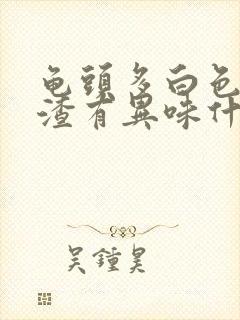 龟頭多白色
渣有異味什
吴鍾昊